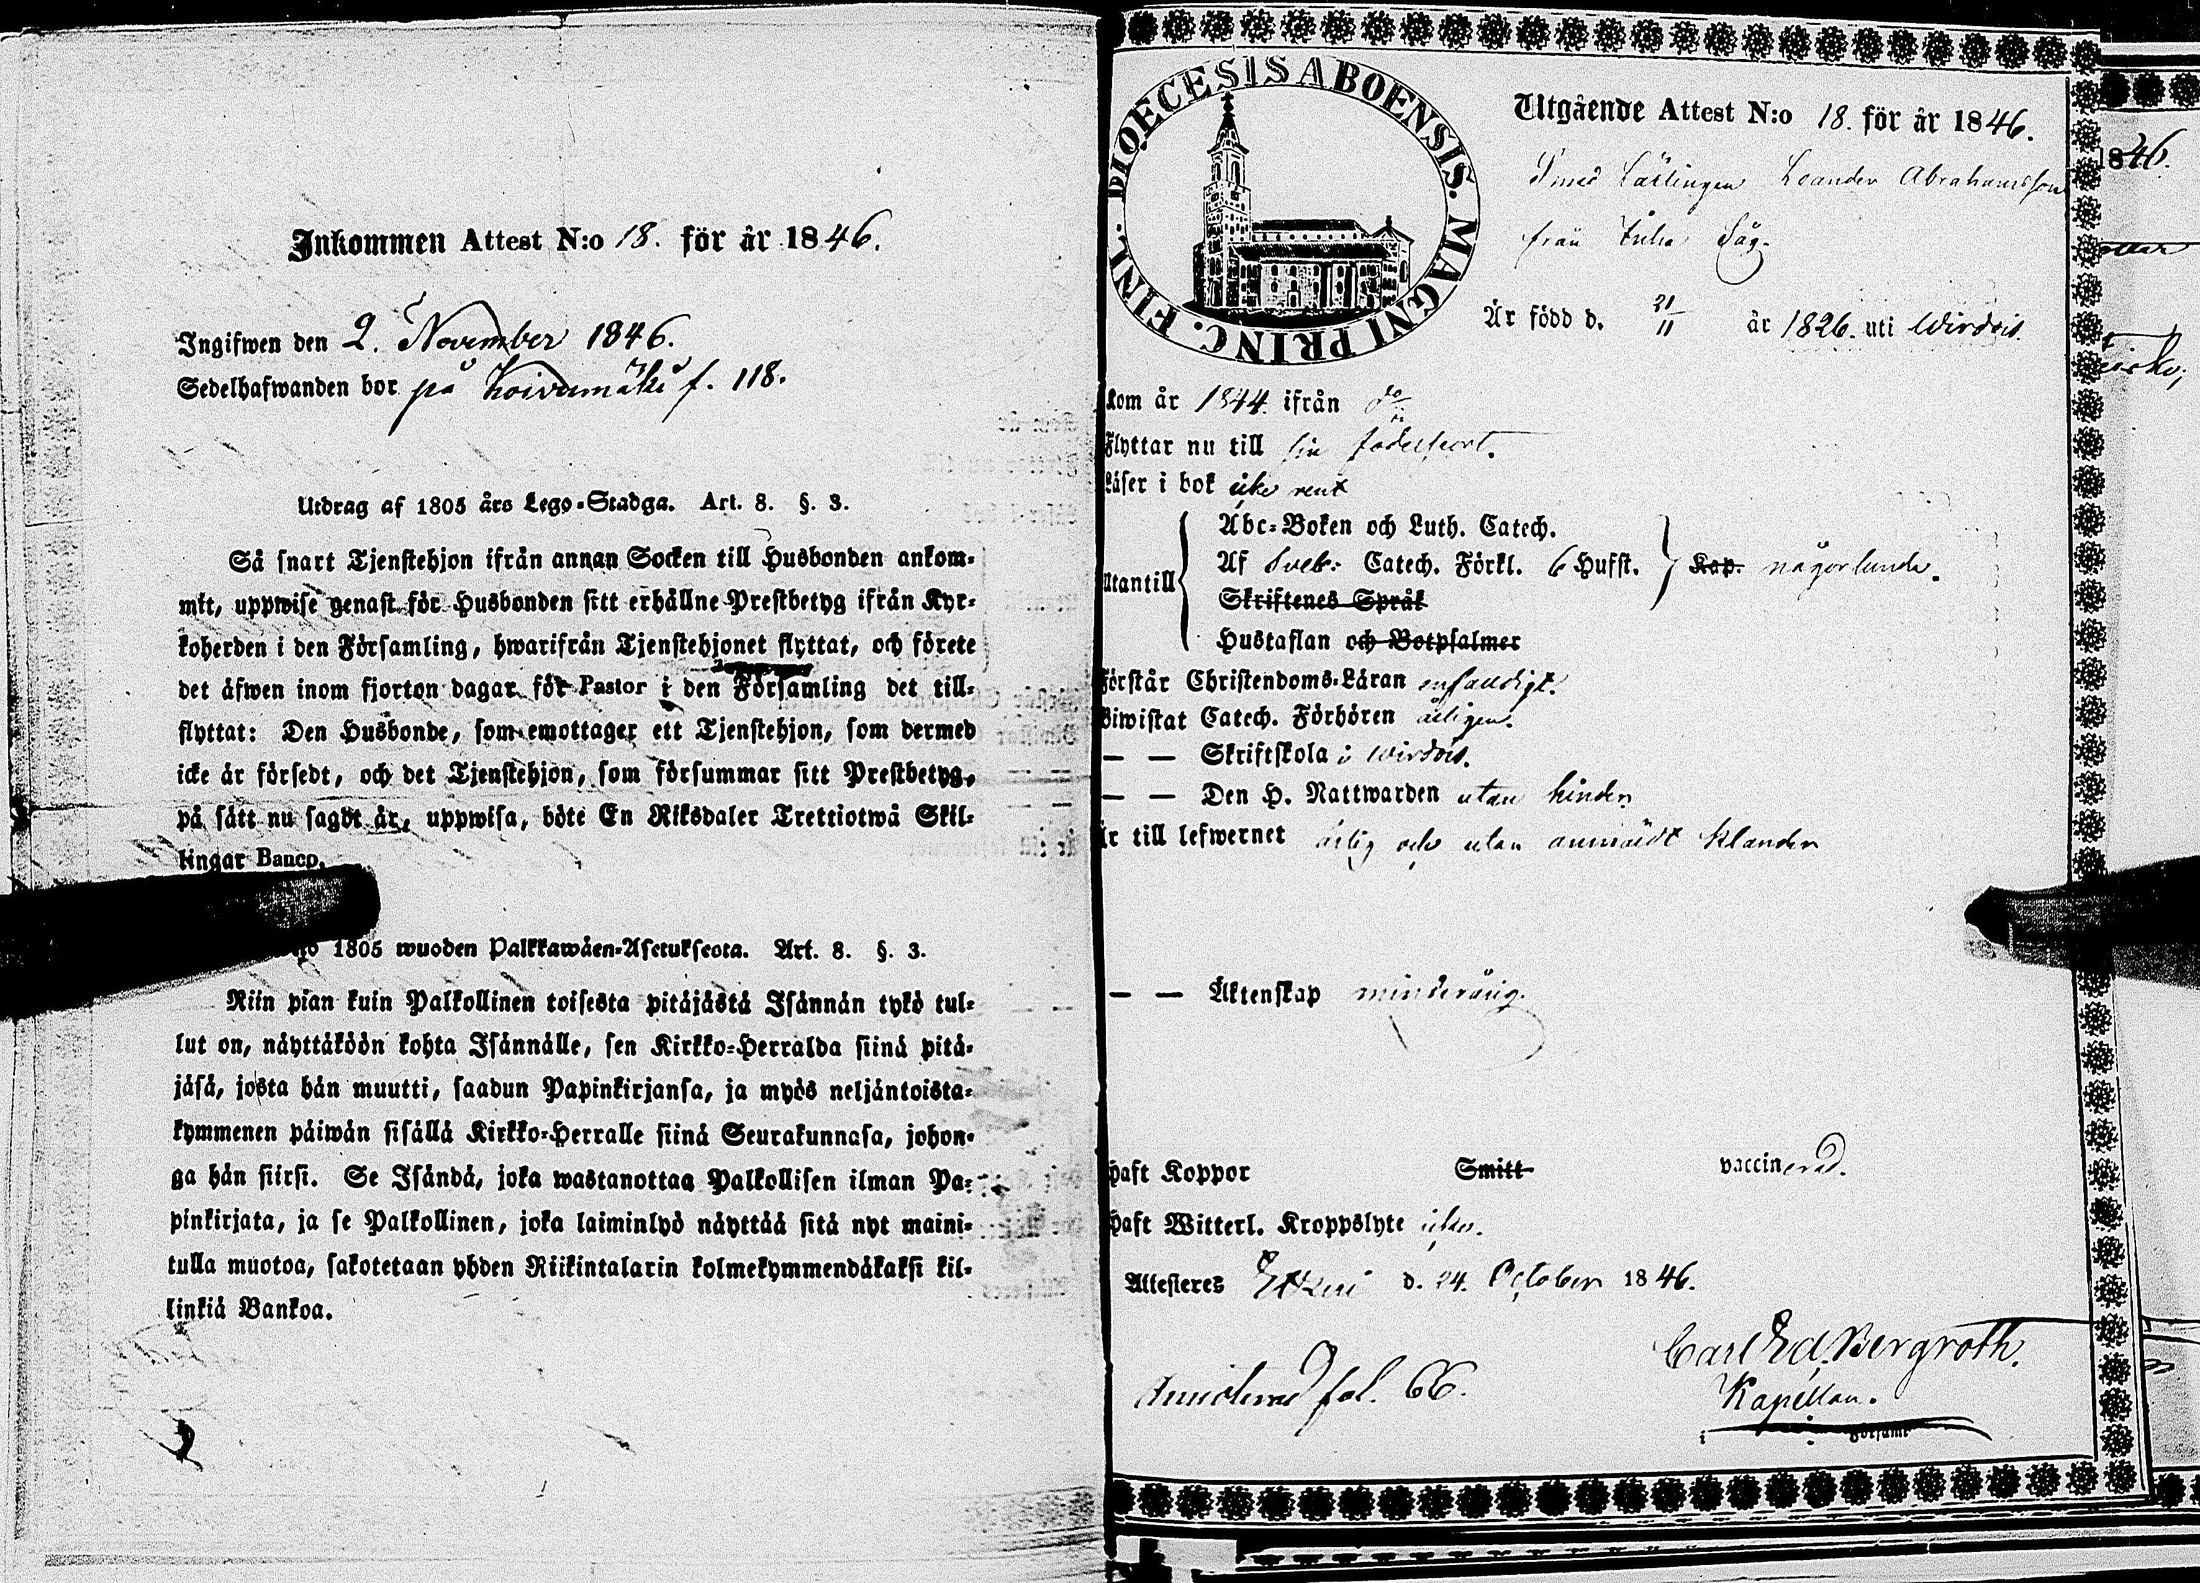 Inkommen Attest N:o 18. för år 1846.
Ingifwen den 2. November 1846.
Sedelhafwanden bor på Koivumäki f. 118.
Utdrag af 1805 års Lego-Stadga. Art. 8. §. 3.
Så snart Tjenstehjon ifrån annan Socken till Husbonden ankom-
mit, uppwise genast för Husbonden sitt erhållne Prestbetyg ifrån Kyr-
koherden i den Församling, hwarifrån Tjenstehjonet flyttat, och förete
det äfwen inom fjorton dagar för Pastor i den Församling det till-
flyttat: Den Husbonde, som emottager ett Tjenstehjon, som dermed
icke är försedt, och det Tjenstehjon, som försummar sitt Prestbetyg,
på sätt nu sagdt är, uppwisa, böte En Riksdaler Trettiotwå Skil-
lingar Banco.
1805 wuoden Palkkawäen-Asetuksesta. Art. 8. §. 3.
Niin pian kuin Palkollinen toisesta pitäjästä Isännän tykö tul-
lut on, näyttäköön kohta Isännälle, sen Kirkko-Herralda siinä pitä-
jäsä, josta hän muutti, saadun Papinkirjansa, ja myös neljäntoista-
kymmenen päiwän sisällä Kirkko-Herralle siinä Seurakunnasa, johon-
ga hän siirsi. Se Isändä, joka wastanottaa Palkollisen ilman Pa-
pinkirjata, ja se Palkollinen, joka laiminlyö näyttää sitä nyt maini-
tulla muotoa, sakotetaan yhden Riikintalarin kolmekymmendäkaksi kil-
linkiä Bankoa.
DIOECESIS ABOENSIS. MAGNI PRINC. FINL.
Utgående Attest N:o 18. för år 1846.
Smed Lärlingen Leander Abrahamsson
från Såg.
Är född d. 21/11 år 1826. uti Wirdois.
kom år 1844. ifrån do
Flyttar nu till sin födelseort.
Läser i bok icke rent
Utantill
Abc-Boken och Luth. Catech.
Af Sveb: Catech. Förkl. 6 Hufst. Kap. någorlunda.
Skriftenes Språk
Hustaflan och Botpsalmer
Förstår Christendoms-Läran enfaldigt.
Biwistat Catech. Förhören årligen.
— — Skriftskola i Wirdois.
— — Den H. Nattwarden utan hinder
Är till lefwernet ärlig och utan anmäldt klander
— — Äktenskap minderårig.
Haft Koppor Smitt vaccinerad.
Haft Witterl. Kroppslyte icke.
Attesteres Etseri d. 24. October 1846.
fol. 66.
Carl Ed. Bergroth.
Kapellan.
i Församl
1846.